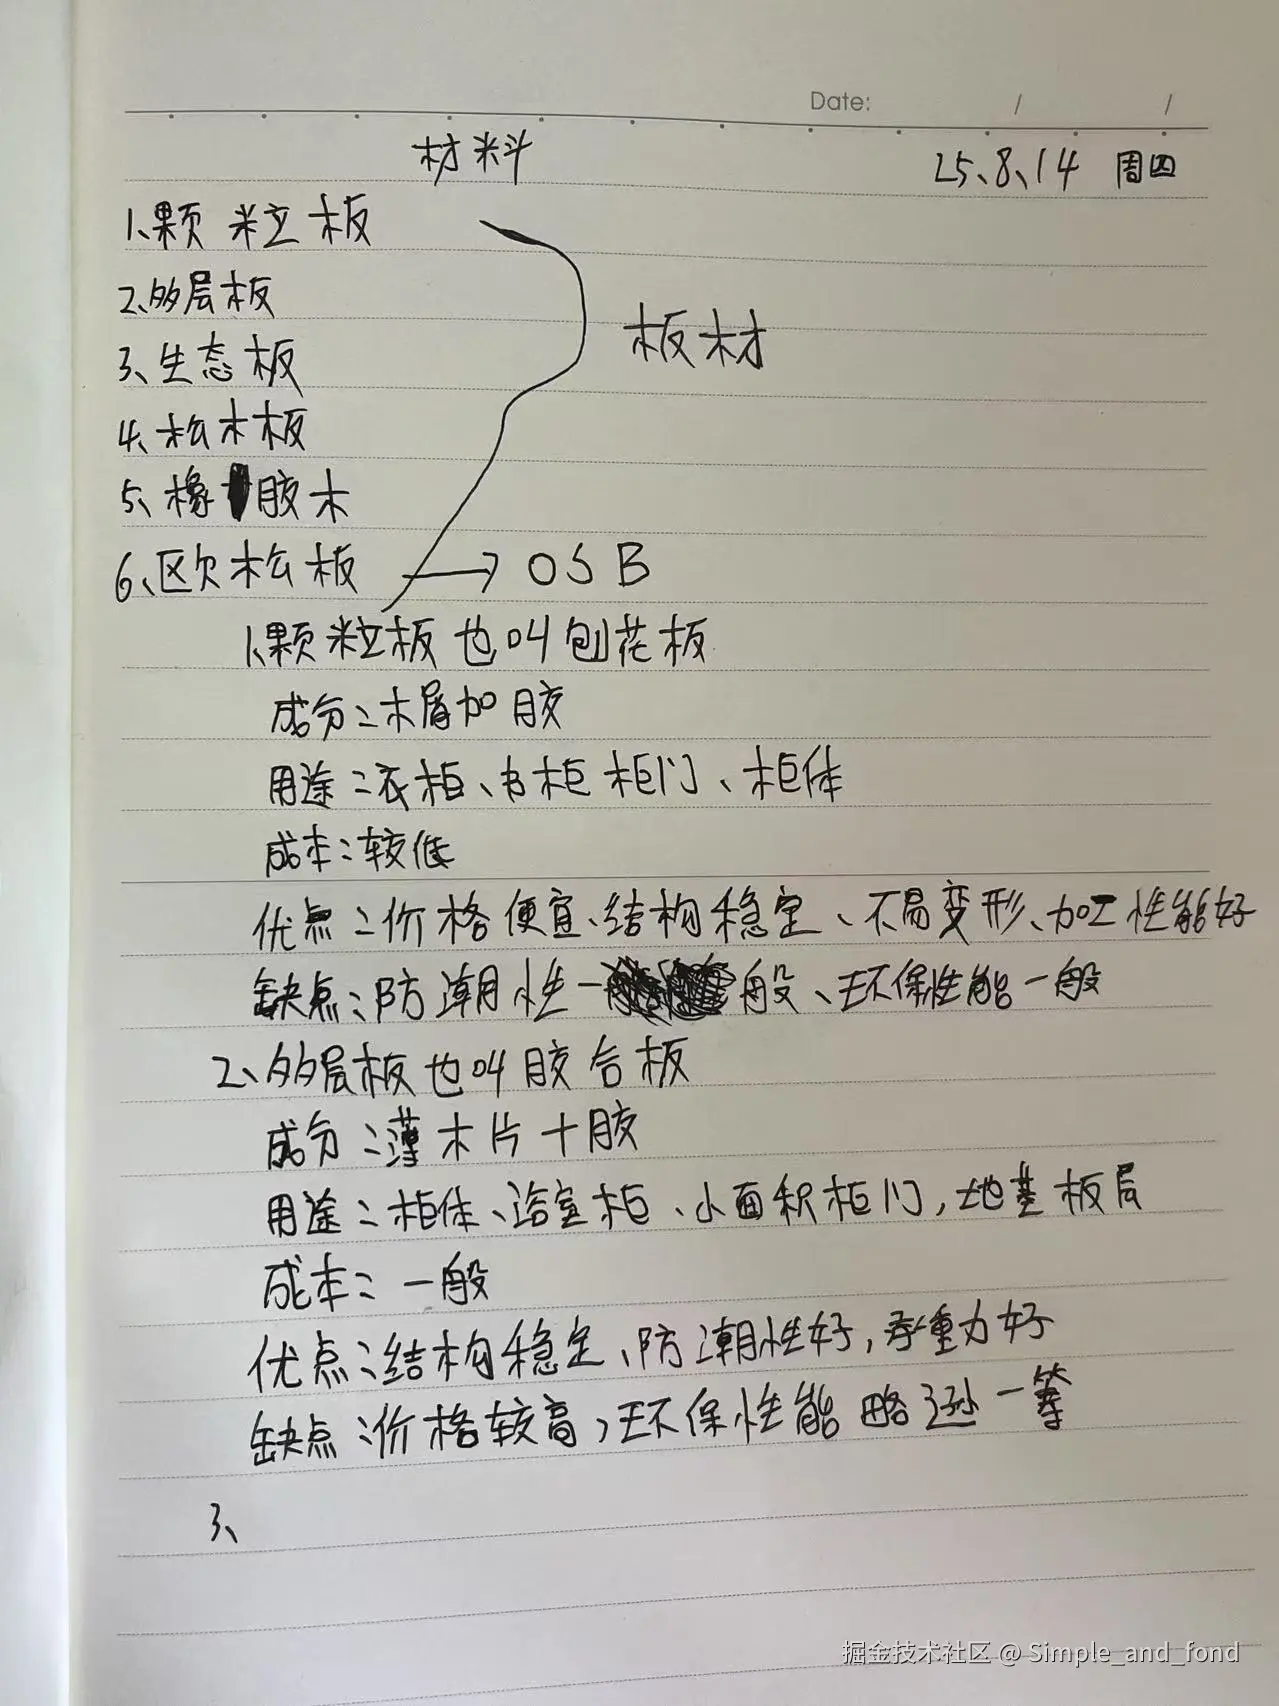 Date: / /
材料
25、8、14 周四
1、颗粒板
2、多层板
板材
3、生态板
4、松木板
5、橡胶木
6、区欠松板 → OSB
1、颗粒板也叫刨花板
成分：木屑加胶
用途：衣柜、书柜柜门、柜体
成本：较低
优点：价格便宜、结构稳定、不易变形、加工性能好
缺点：防潮性一般、环保性能一般
2、多层板也叫胶合板
成分：薄木片+胶
用途：柜体、浴室柜、小面积柜门，地基板层
成本：一般
优点：结构稳定、防潮性好，承重力好
缺点：价格较高，环保性能略逊一筹
3、
掘金技术社区 @ Simple_and_fond